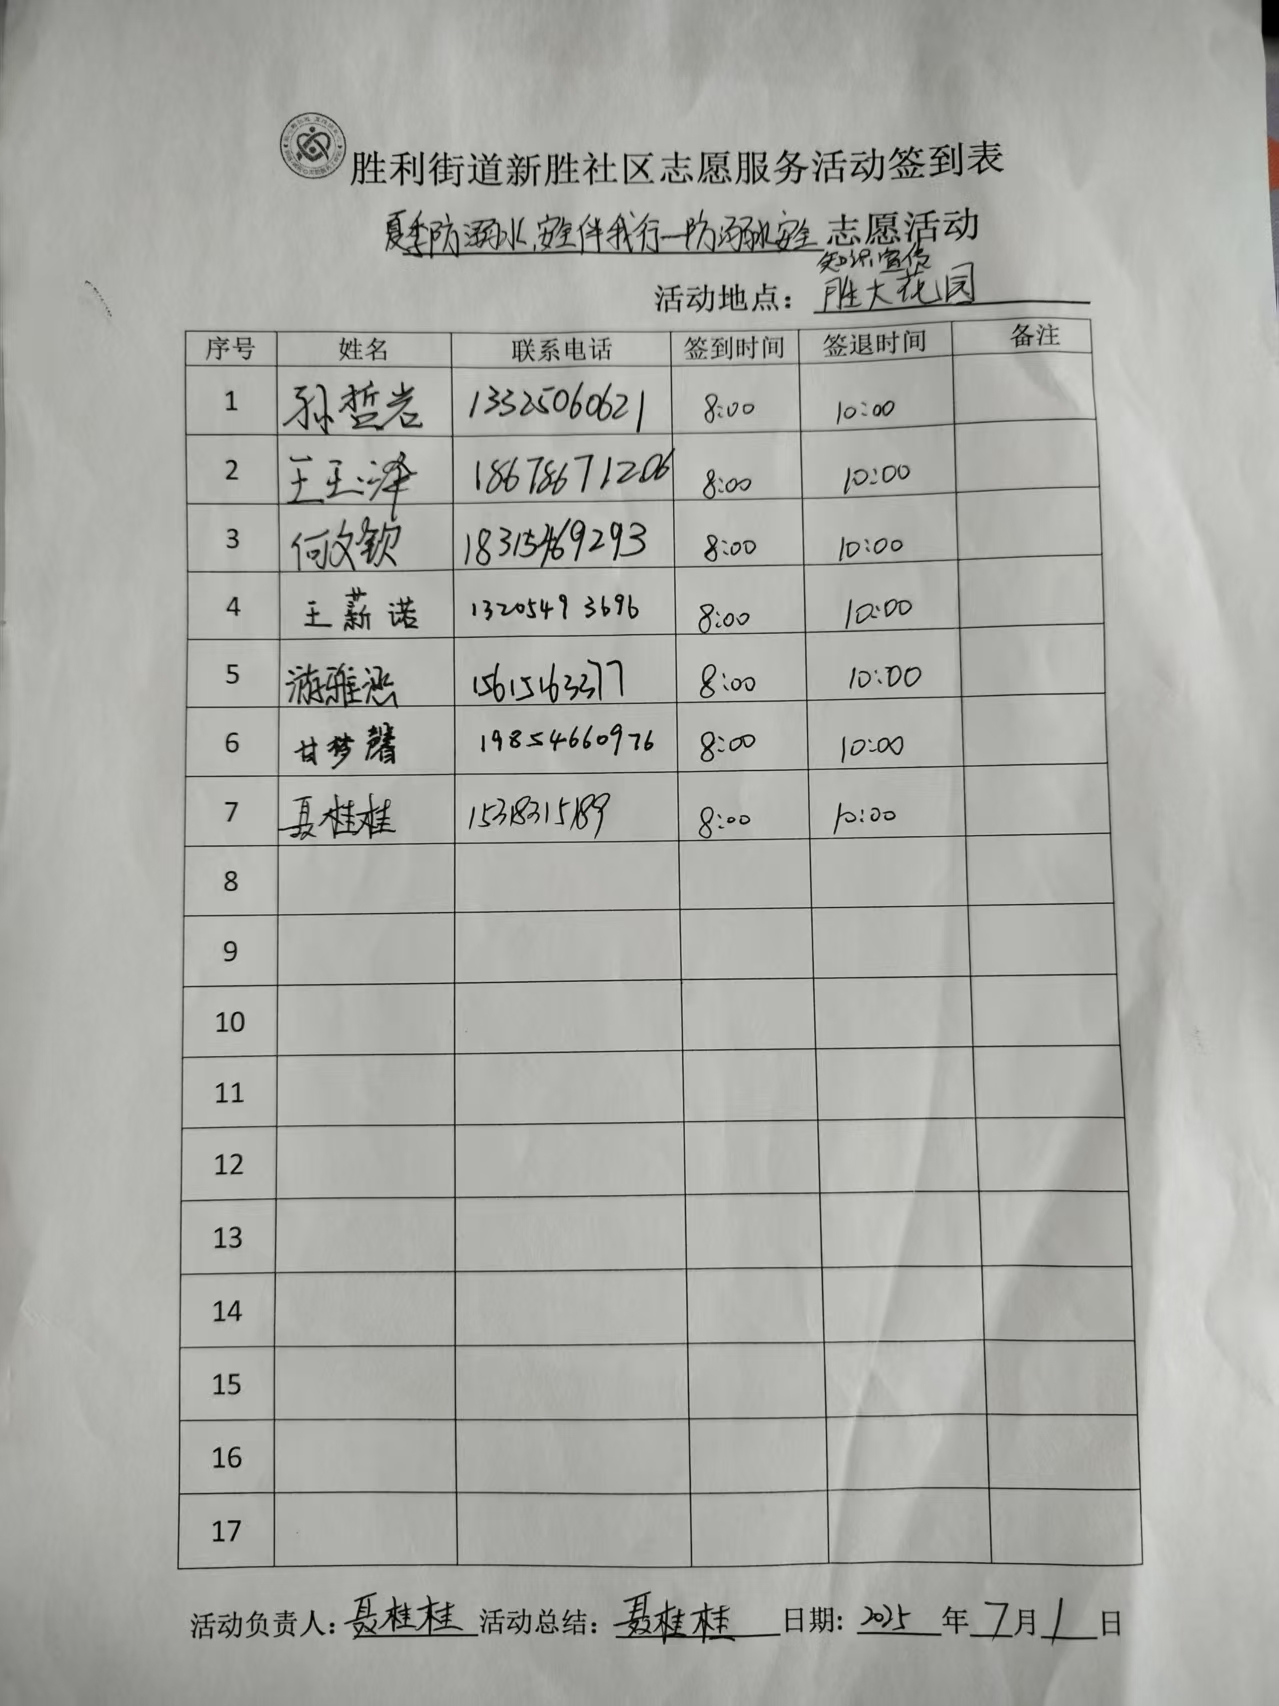 胜利街道新胜社区志愿服务活动签到表
夏季防溺水,安全伴我行—防溺水安全志愿活动
知识宣传
活动地点：胜大花园
序号 姓名 联系电话 签到时间 签退时间 备注
1 孙哲岩 13325060621 8:00 10:00
2 王玉泽 18678671206 8:00 10:00
3 何文钦 18315469293 8:00 10:00
4 王薪诺 13205493696 8:00 10:00
5 游雅涵 1561563377 8:00 10:00
6 甘梦馨 19854660976 8:00 10:00
7 聂桂桂 15318315189 8:00 10:00
8
9
10
11
12
13
14
15
16
17
活动负责人:聂桂桂 活动总结:聂桂桂 日期: 2025年7月1日